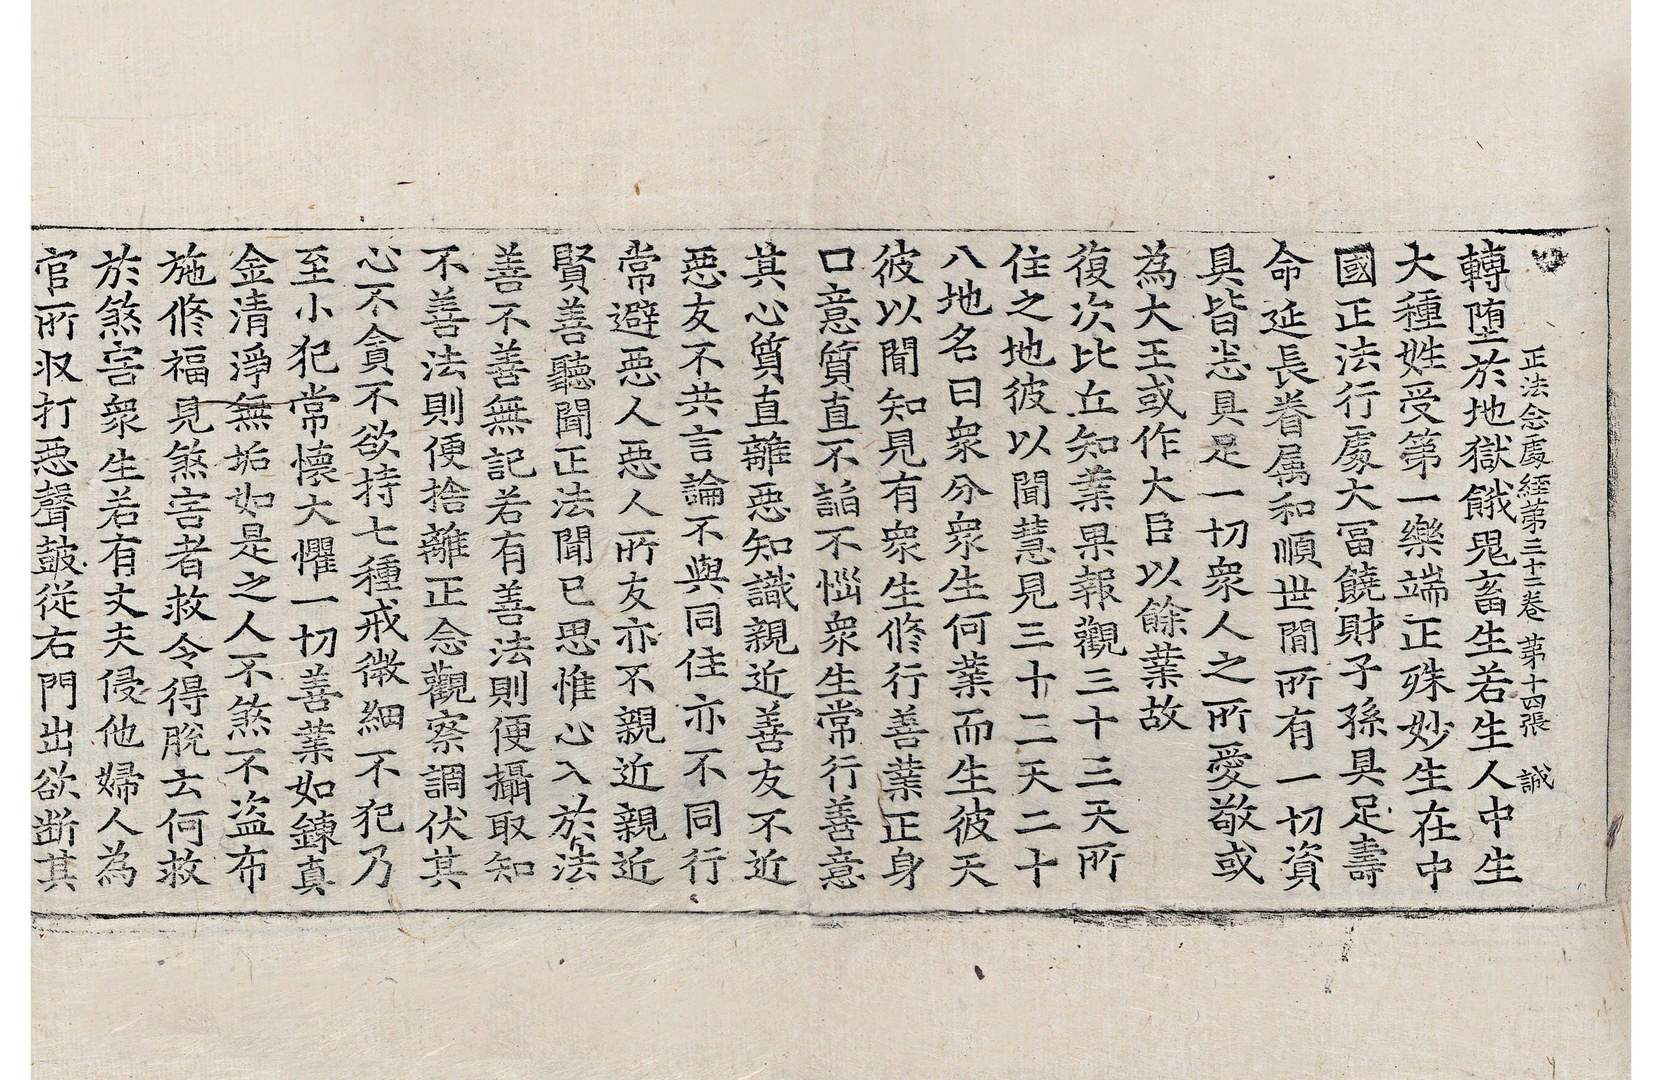 正法念處經第三十二卷　第十四張　誠
轉墮於地獄餓鬼畜生若生人中生
大種姓受第一樂端正殊妙生在中
國正法行處大冨饒財子孫具足壽
命延長眷属和順世間所有一切資
具皆悉具足一切衆人之所愛敬或
為大王或作大臣以餘業故
復次比丘知業果報觀三十三天所
住之地彼以聞慧見三十二天二十
八地名曰衆分衆生何業而生彼天
彼以聞知見有衆生修行善業正身
口意質直不諂不惱衆生常行善意
其心質直離惡知識親近善友不近
惡友不共言論不與同住亦不同行
常避惡人惡人所友亦不親近親近
賢善聽聞正法聞已思惟心入於法
善不善無記若有善法則便攝取知
不善法則便捨離正念觀察調伏其
心不貪不欲持七種戒微細不犯乃
至小犯常懷大懼一切善業如鍊真
金清淨無垢如是之人不煞不盜布
施修福見煞害者救令得脫云何救
於煞害衆生若有丈夫侵他婦人為
官所収打惡聲鼓從右門出欲断其